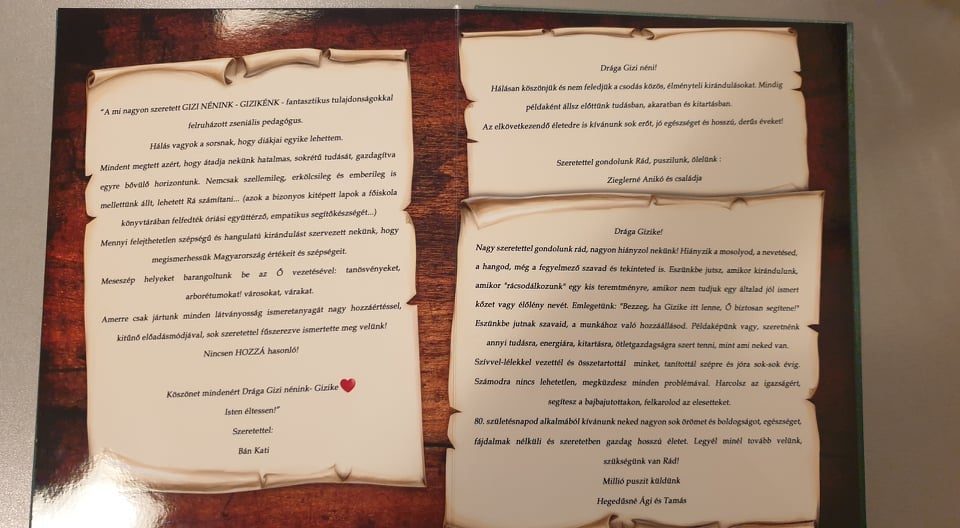 "A mi nagyon szeretett GIZI NÉNINK - GIZIKÉNK - fantasztikus tulajdonságokkal
felruházott zseniális pedagógus.
Hálás vagyok a sorsnak, hogy diákjai egyike lehettem.
Mindent megtett azért, hogy átadja nekünk hatalmas, sokrétű tudását, gazdagítva
egyre bővülő horizontunk. Nemcsak szellemileg, erkölcsileg és emberileg is
mellettünk állt, lehetett Rá számítani... (azok a bizonyos kitépett lapok a főiskola
könyvtárában felfedték óriási együttérző, empatikus segítőkészségét...)
Mennyi felejthetetlen szépségű és hangulatú kirándulást szervezett nekünk, hogy
megismerhessük Magyarország értékeit és szépségeit.
Meseszép helyeket barangoltunk be az Ő vezetésével: tanösvényeket,
arborétumokat! városokat, várakat.
Amerre csak jártunk minden látványosság ismeretanyagát nagy hozzáértéssel,
kitűnő előadásmódjával, sok szeretettel fűszerezve ismertette meg velünk!
Nincsen HOZZÁ hasonló!
Köszönet mindenért Drága Gizi nénink- Gizike❤
Isten éltessen!"
Szeretettel:
Bán Kati
Drága Gizi néni!
Hálásan köszönjük és nem feledjük a csodás közös, élményteli kirándulásokat. Mindig
példaként állsz előttünk tudásban, akaratban és kitartásban.
Az elkövetkezendő életedre is kívánunk sok erőt, jó egészséget és hosszú, derűs éveket!
Szeretettel gondolunk Rád, puszilunk, ölelünk :
Zieglerné Anikó és családja
Drága Gizike!
Nagy szeretettel gondolunk rád, nagyon hiányzol nekünk! Hiányzik a mosolyod, a nevetésed,
a hangod, még a fegyelmező szavad és tekinteted is. Eszünkbe jutsz, amikor kirándulunk,
amikor "rácsodálkozunk" egy kis teremtményre, amikor nem tudjuk egy általad jól ismert
kőzet vagy élőlény nevét. Emlegetünk: "Bezzeg, ha Gizike itt lenne, Ő biztosan segítene!"
Eszünkbe jutnak szavaid, a munkához való hozzáállásod. Példaképünk vagy, szeretnénk
annyi tudásra, energiára, kitartásra, ötletgazdagságra szert tenni, mint ami neked van.
Szívvel-lélekkel vezettél és összetartottál minket, tanítottál szépre és jóra sok-sok évig.
Számodra nincs lehetetlen, megküzdesz minden problémával. Harcolsz az igazságért,
segítesz a bajbajutottakon, felkarolod az elesetteket.
80. születésnapod alkalmából kívánunk neked nagyon sok örömet és boldogságot, egészséget,
fájdalmak nélküli és szeretetben gazdag hosszú életet. Legyél minél tovább velünk,
szükségünk van Rád!
Millió puszit küldünk
Hegedűsné Ági és Tamás